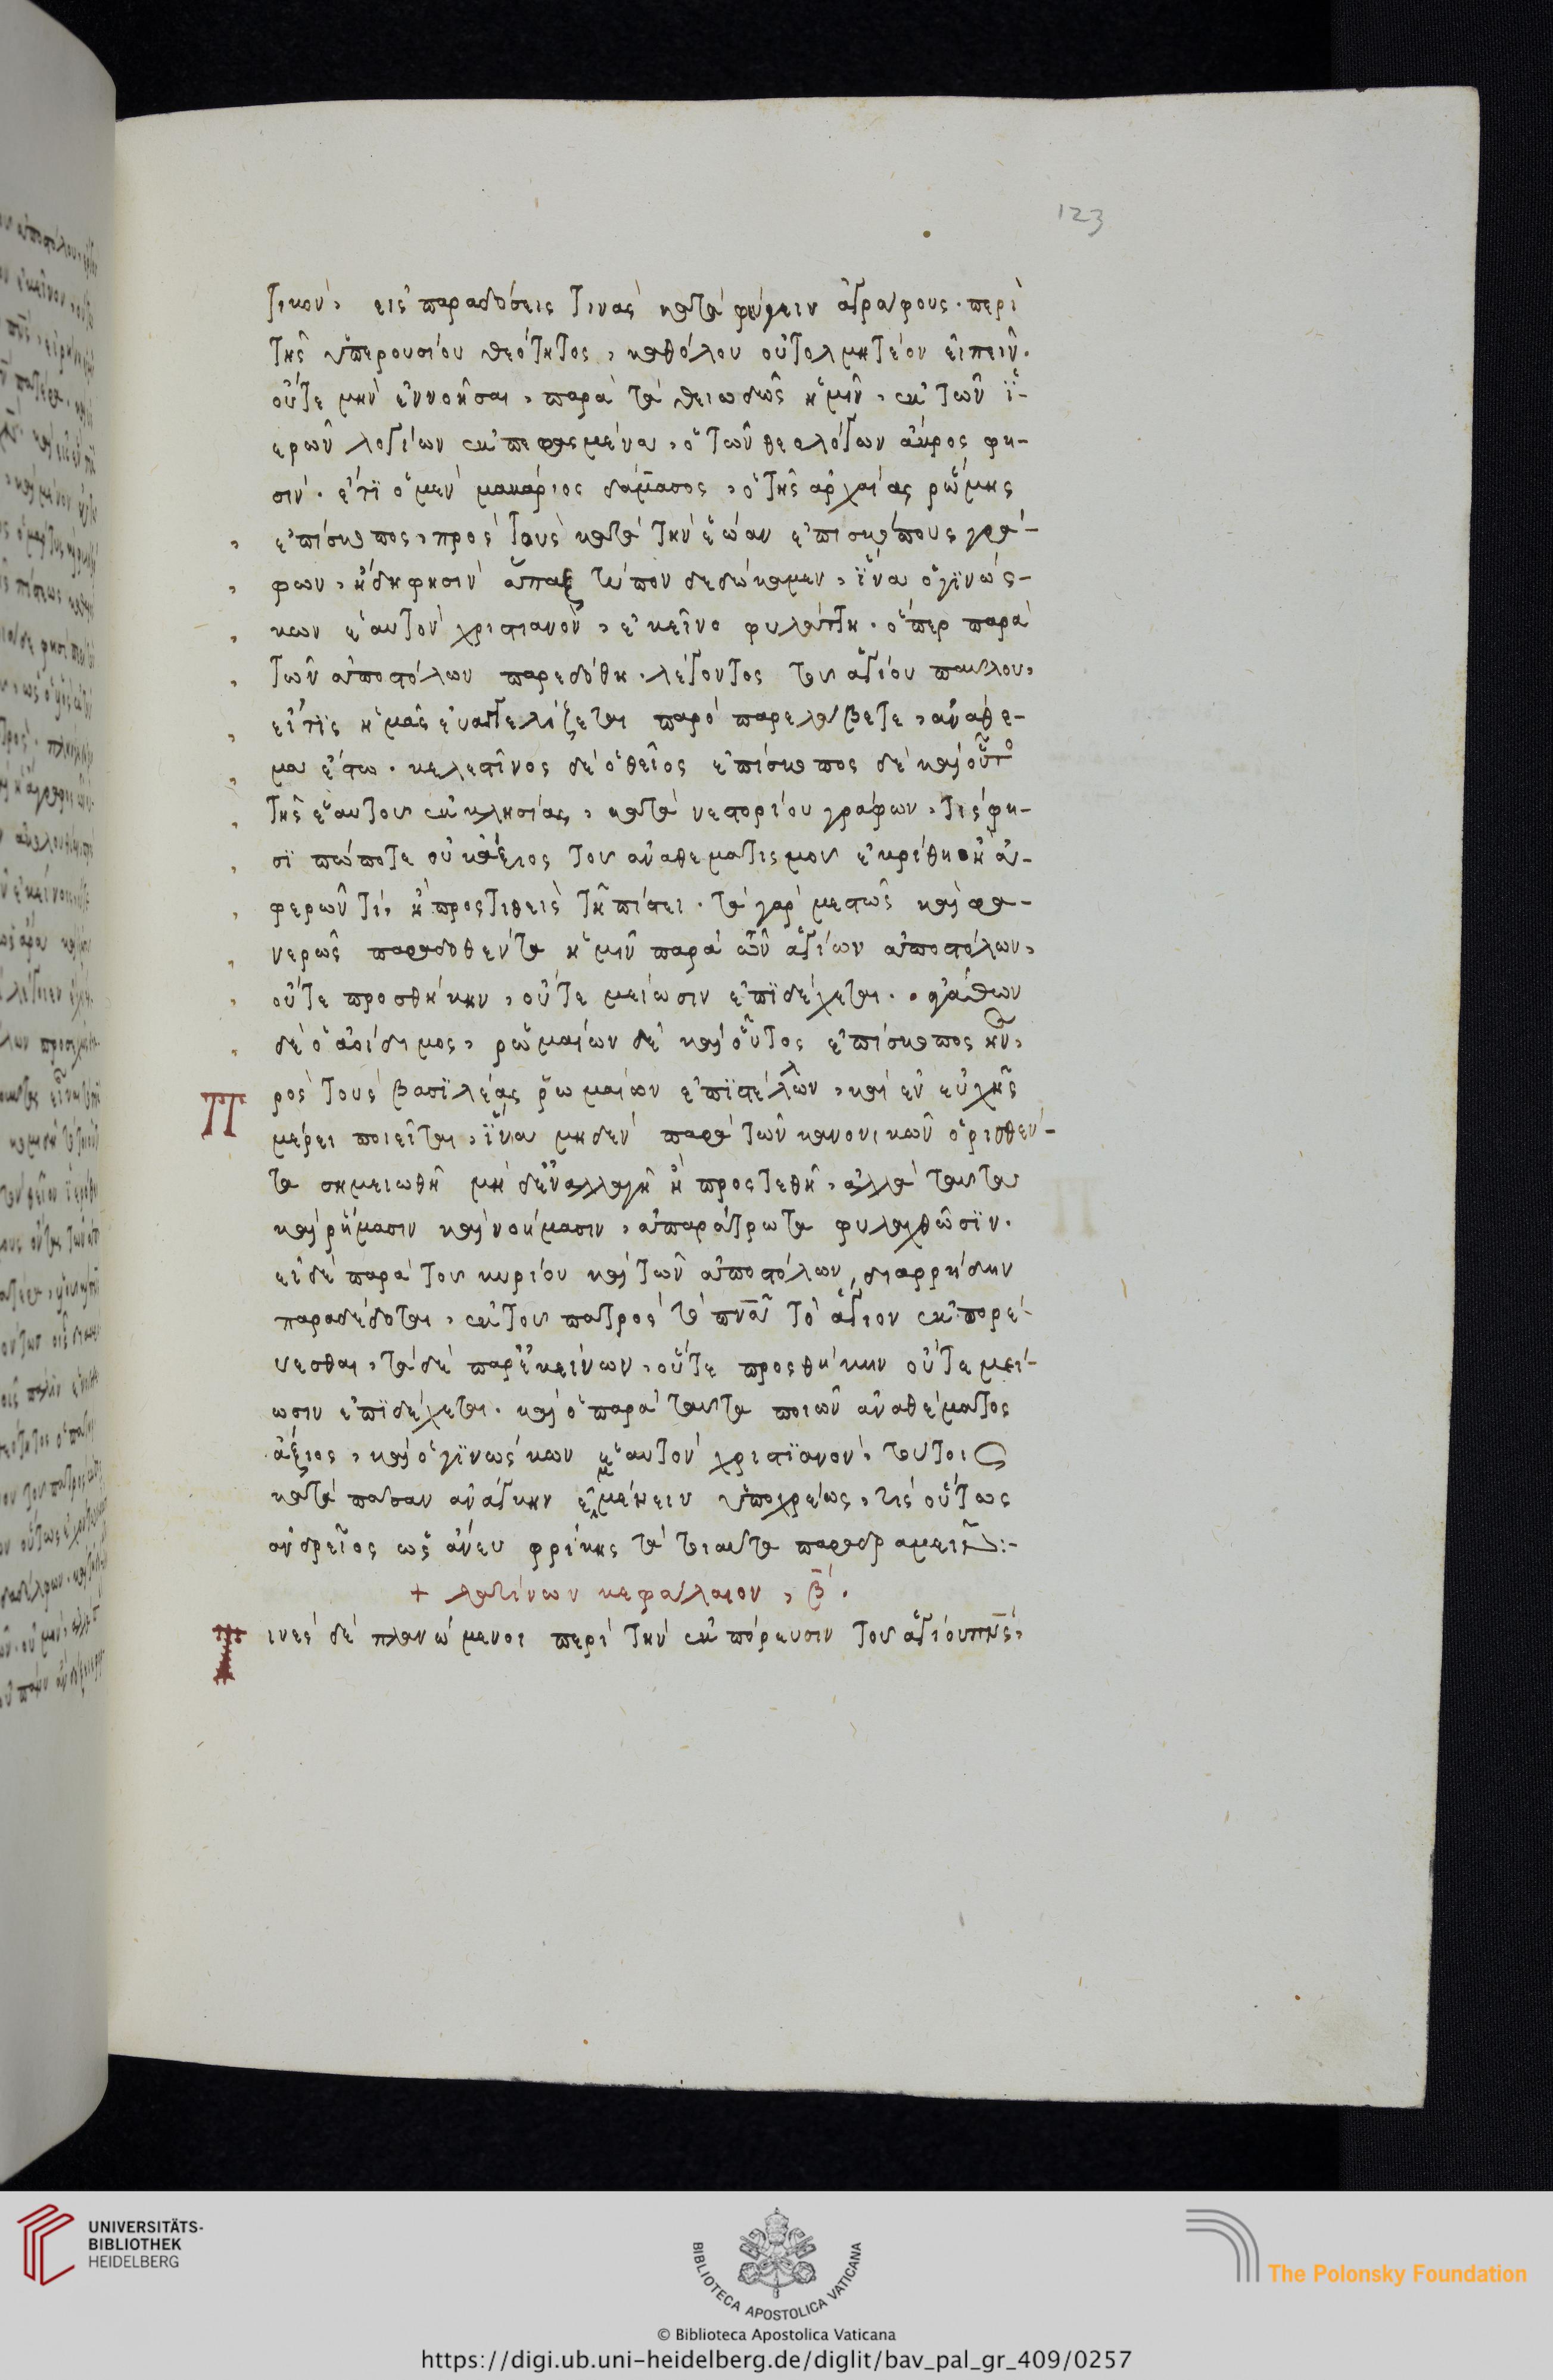 123
τικόν, εἰς παραδόσεις τινὰς καταφεύγειν ἀγράφους. περὶ
τῆς ὑπερουσίου θεότητος, καθόλου οὐ τολμητέον εἰπεῖν.
οὔτε μὴν ἐννοῆσαι, παρὰ τὰ θειωδῶς ἡμῖν, ἐκ τῶν ἱ-
ερῶν λογίων ἐκπεφασμένα, ὁ τῶν θεολόγων ἄκρος φη-
σίν. ἔτι ὁ μὲν μακάριος δάμασος, ὁ τῆς ἀρχαίας ῥώμης
ἐπίσκοπος, πρὸς τοὺς κατὰ τὴν ἑώαν ἐπισκόπους γρά-
φων, ἤδη φησὶν ἅπαξ τύπον δεδώκαμεν, ἵνα ὁ γινώσ-
κων ἑαυτὸν χριστιανὸν, ἐκεῖνο φυλάττη. ὅπερ παρὰ
τῶν ἀποστόλων παρεδόθη. λέγοντος τοῦ ἁγίου παύλου,
εἴ τις ἡμᾶς εὐαγγελίζεται παρὸ παρελάβετε, ἀνάθε-
μα ἔστω. κελεστῖνος δὲ ὁ θεῖος ἐπίσκοπος δὲ καὶ οὗτο
τῆς ἑαυτοῦ ἐκκλησίας, κατὰ νεστορίου γράφων, τίς φη-
σὶ πώποτε οὐκ ἄξιος τοῦ ἀναθεματισμοῦ ἐκρίθη ἢ ἀ-
φερῶν τί, ἢ προστιθεὶς τῆ πίστει. τὰ γὰρ μεστῶς καὶ φα-
νερῶς παραδοθέντα ἡμῖν παρὰ τῶν ἁγίων ἀποστόλων,
οὔτε προσθήκην, οὔτε μείωσιν ἐπιδέχεται. ἀγάθων
δὲ ὁ ἀοίδιμος, ῥωμαίων δὲ καὶ οὗτος ἐπίσκοπος ἦν,
Πρὸς τοὺς βασιλέας ῥωμαίων ἐπιστέλλων, καὶ ἐν εὐχῆς
μέρει ποιεῖται, ἵνα μηδὲν παρὰ τῶν κανονικῶν ὁρισθέν-
τα σημειωθῆ μὴ δ' ἐναλλαγῆ ἢ προστεθῆ, ἀλλὰ ταῦτα
καὶ ῥήμασιν καὶ νοήμασιν, ἀπαράτρωτα φυλαχθῶσιν.
εἰ δὲ παρὰ τοῦ κυρίου καὶ τῶν ἀποστόλων, διαρρήδην
παραδέδοται, ἐκ τοῦ πατρὸς τὸ πνᾶ τὸ ἅγιον ἐκπορε-
ύεσθαι, τὰ δὲ παρ' ἐκείνων, οὔτε προσθήκην οὔτε μεί-
ωσιν ἐπιδέχεται. καὶ ὁ παρὰ ταῦτα ποιῶν ἀναθέματος
ἄξιος, καὶ ὁ γινώσκων ἑαυτὸν χριστιανὸν, τούτοις
κατὰ πᾶσαν ἀνάγκην ἐμμένειν ὑπόχρεως, τίς οὕτως
ἀνδρεῖος ὡς ἄνευ φρίκης τὰ τοιαῦτα παραδραμεῖν:-
+ λατίνων κεφάλαιον, β.
Τινὲς δὲ πλανώμενοι περὶ τὴν ἐκπόρευσιν τοῦ ἁγίου πνς,
UNIVERSITÄTS-
BIBLIOTHEK
HEIDELBERG
BIBLIOTECA APOSTOLICA VATICANA
The Polonsky Foundation
© Biblioteca Apostolica Vaticana
https://digi.ub.uni-heidelberg.de/diglit/bav_pal_gr_409/0257